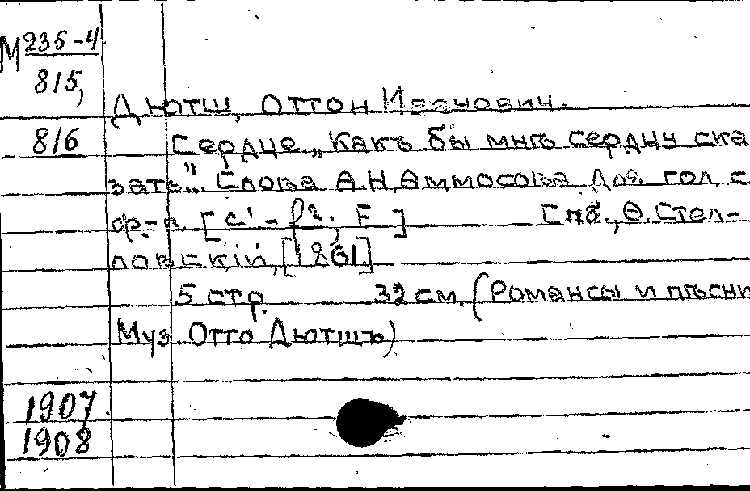 М 235-4
815,
Дютш, Оттон Иванович.
816
Сердце. „Какъ бы мнѣ сердцу ска
зать". Слова А.Н.Аммосова. Для гол. с
ф-п. [c¹-f²; F] Спб., Ѳ. Стел-
ловскій, [1861]
5 стр. 32 см. (Романсы и пѣсни
Муз. Отто Дютшъ)
1907
1908